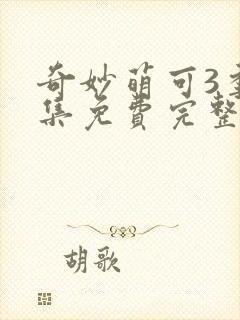 奇妙萌可3全
集免费完整
胡歌